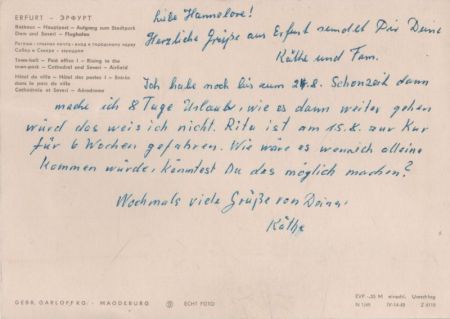 ERFURT - ЭРФУРТ
Rathaus - Hauptpost - Aufgang zum Stadtpark
Dom und Severi - Flughafen
Town-hall - Post office I - Rising to the
town-park - Cathedral and Severi - Airfield
Hôtel de ville - Hôtel des postes I - Entrée
dans le parc de ville
Cathédrale et Severi - Aérodrome
Liebe Hannelore!
Herzliche Grüße aus Erfurt sendet Dir Deine
Käthe und Fam.
Ich habe noch bis zum 24.8. Schonzeit dann
mache ich 8 Tage Urlaub, wie es dann weiter gehen
würd das weis ich nicht. Rita ist am 15.8. zur Kur
für 6 Wochen gefahren. Wie wäre es wenn ich alleine
kommen würde, könntest Du das möglich machen?
Nochmals viele Grüße von Deiner
Käthe
GEBR. GARLOFF KG. - MAGDEBURG
ECHT FOTO
EVP -,25 M einschl. Umschlag